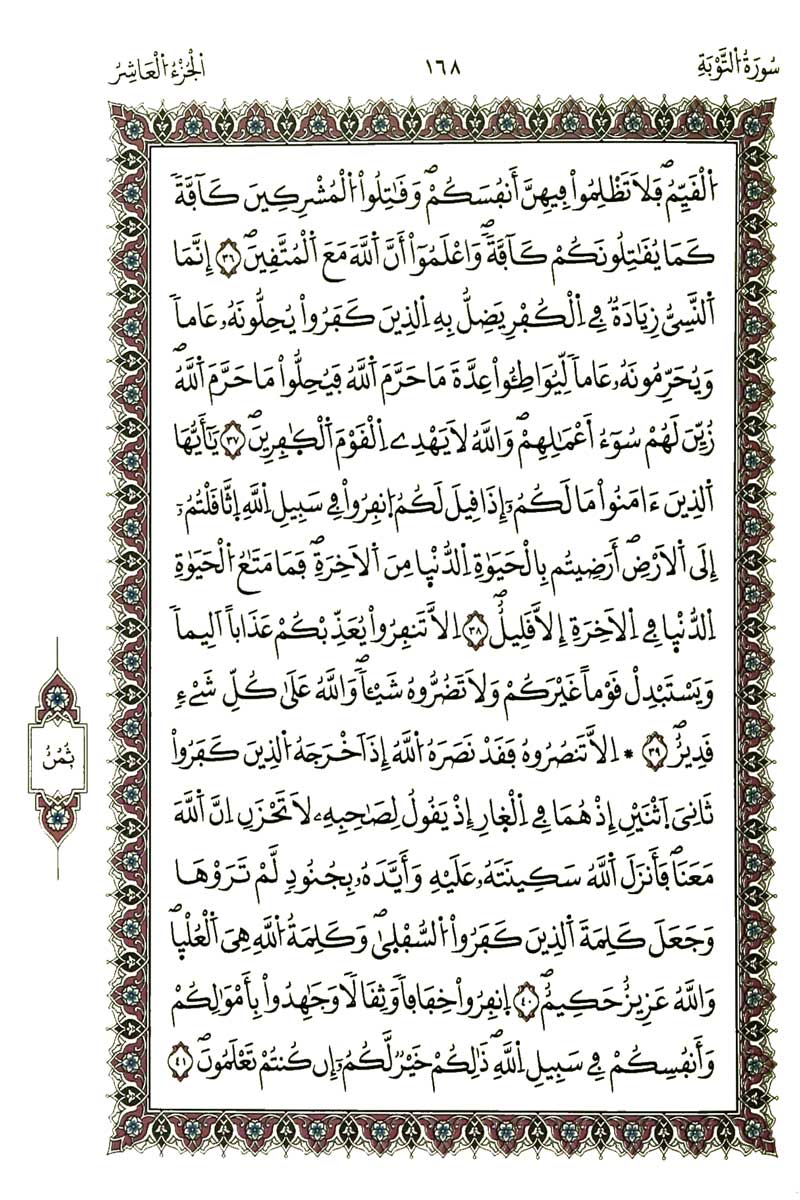 سُورَةُ التَّوْبَةِ
١٦٨
الجُزْءُ الْعَاشِرُ
اَ۬لْقَيِّمُۖ فَلَا تَظْلِمُواْ فِيهِنَّ أَنفُسَكُمْۖ وَقَٰتِلُواْ اُ۬لْمُشْرِكِينَ كَآفَّةٗ
كَمَا يُقَٰتِلُونَكُمْ كَآفَّةٗۖ وَاعْلَمُوٓاْ أَنَّ اَ۬للَّهَ مَعَ اَ۬لْمُتَّقِينَۖ ٣٦ إِنَّمَا
اَ۬لنَّسِيُّ زِيَادَةٞ فِے اِ۬لْكُفْرِ يَضِلُّ بِهِ اِ۬لذِينَ كَفَرُواْ يُحِلُّونَهُۥ عَاماٗ
وَيُحَرِّمُونَهُۥ عَاماٗ لِّيُوَاطِـُٔواْ عِدَّةَ مَا حَرَّمَ اَ۬للَّهُ فَيُحِلُّواْ مَا حَرَّمَ اَ۬للَّهُۖ
زُيِّنَ لَهُمْ سُوٓءُ اَعْمَٰلِهِمْۖ وَاللَّهُ لَا يَهْدِے اِ۬لْقَوْمَ اَ۬لْكٰ۪فِرِينَۖ ٣٧ يَٰٓأَيُّهَا
اَ۬لذِينَ ءَامَنُواْ مَا لَكُمُۥٓ إِذَا قِيلَ لَكُمُ اُ۪نفِرُواْ فِے سَبِيلِ اِ۬للَّهِ اِ۪ثَّاقَلْتُمُۥٓ
إِلَى اَ۬لَارْضِۖ أَرَضِيتُم بِالْحَيَوٰةِ اِ۬لدُّنْي۪ا مِنَ اَ۬لَاخِرَةِۖ فَمَا مَتَٰعُ اُ۬لْحَيَوٰةِ
اِ۬لدُّنْي۪ا فِے اِ۬لَاخِرَةِ إِلَّا قَلِيلٌۖ ٣٨ اِلَّا تَنفِرُواْ يُعَذِّبْكُمْ عَذَاباً اَلِيماٗ
وَيَسْتَبْدِلْ قَوْماً غَيْرَكُمْ وَلَا تَضُرُّوهُ شَيْـٔاٗۖ وَاللَّهُ عَلَىٰ كُلِّ شَےْءٖ
قَدِيرٌۖ ٣٩ * اِلَّا تَنصُرُوهُ فَقَدْ نَصَرَهُ اُ۬للَّهُ إِذَ اَخْرَجَهُ اُ۬لذِينَ كَفَرُواْ
ثَانِيَ اَ۪ثْنَيْنِ إِذْ هُمَا فِے اِ۬لْغ۪ارِ إِذْ يَقُولُ لِصَٰحِبِهِۦ لَا تَحْزَنِ اِنَّ اَ۬للَّهَ
مَعَنَاۖ فَأَنزَلَ اَ۬للَّهُ سَكِينَتَهُۥ عَلَيْهِ وَأَيَّدَهُۥ بِجُنُودٖ لَّمْ تَرَوْهَا
وَجَعَلَ كَلِمَةَ اَ۬لذِينَ كَفَرُواْ اُ۬لسُّفْل۪ىٰۖ وَكَلِمَةُ اُ۬للَّهِ هِيَ اَ۬لْعُلْي۪اۖ
وَاللَّهُ عَزِيزٌ حَكِيمٌۖ ٤٠ اِ۪نفِرُواْ خِفَافاٗ وَثِقَالاٗ وَجَٰهِدُواْ بِأَمْوَٰلِكُمْ
وَأَنفُسِكُمْ فِے سَبِيلِ اِ۬للَّهِۖ ذَٰلِكُمْ خَيْرٞ لَّكُمُۥٓ إِن كُنتُمْ تَعْلَمُونَۖ ٤١
ثُمُنٌ